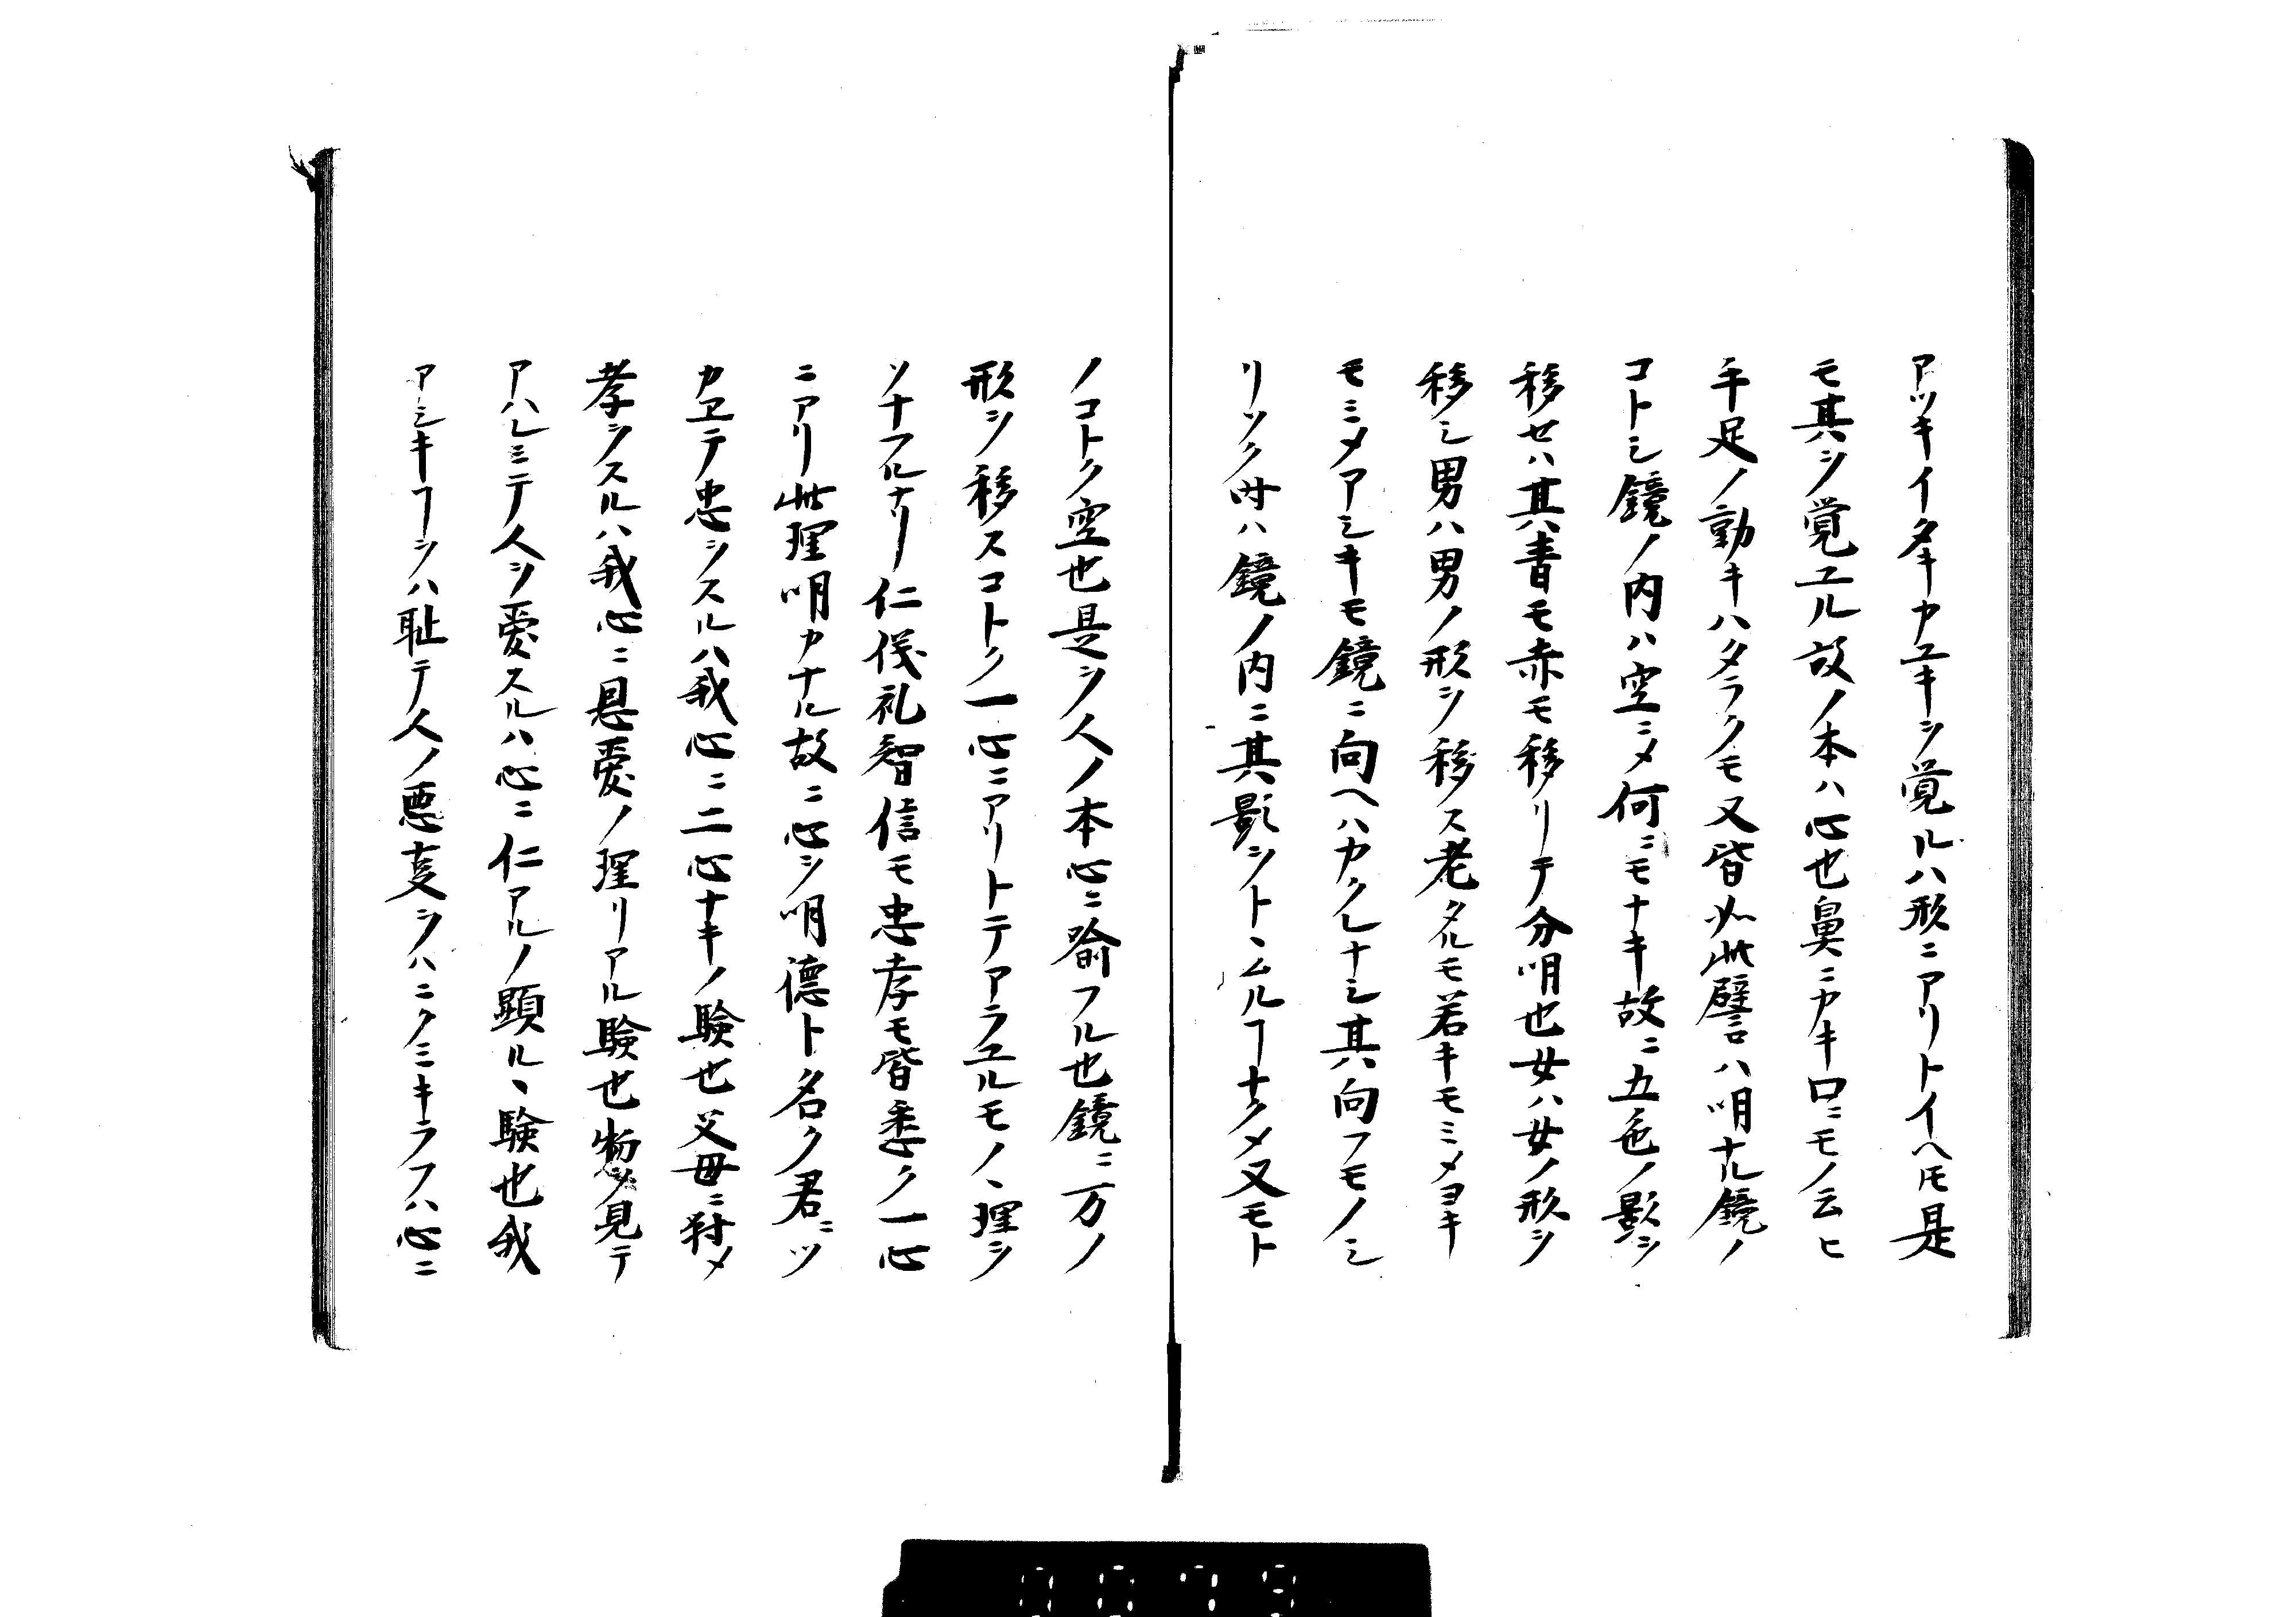 アツキイタキカユキヲ覚ルハ形ニアリトイヘ𪜈是
モ其ヲ覚ユル故ノ本ハ心也鼻ニカキ口ニモノ云ヒ
手足ノ動キハタラクモ又皆如此譬ハ明ナル鏡ノ
コトシ鏡ノ内ハ空ニメ何ニモナキ故ニ五色ノ影ヲ
移セハ其青モ赤モ移リテ分明也女ハ女ノ形ヲ
移シ男ハ男ノ形ヲ移ス老タルモ若キモミメヨキ
モミメアシキモ鏡ニ向ヘハカクレナシ其向フモノヽ
リツク時ハ鏡ノ内ニ其影ヲトヽムルヿナクメ又モト
ノコトク空也是ヲ人ノ本心ニ喩フル也鏡ニ万ノ
形ヲ移スコトク一心ニアリトテアラユルモノヽ理ヲ
ソナフルナリ仁儀礼智信モ忠孝モ皆悉ク一心
ニアリ此理明カナル故ニ心ヲ明徳ト名ク君ニツ
カヱテ忠ヲスルハ我心ニ二心ナキノ験也父母ニ対メ
孝ヲスルハ我心ニ恩愛ノ理リアル験也惣メ見テ
アハレミテ人ヲ愛スルハ心ニ仁アルノ顕ルヽ験也我
アシキヿヲハ耻テ人ノ悪支ヲハニクミキラフハ心ニ